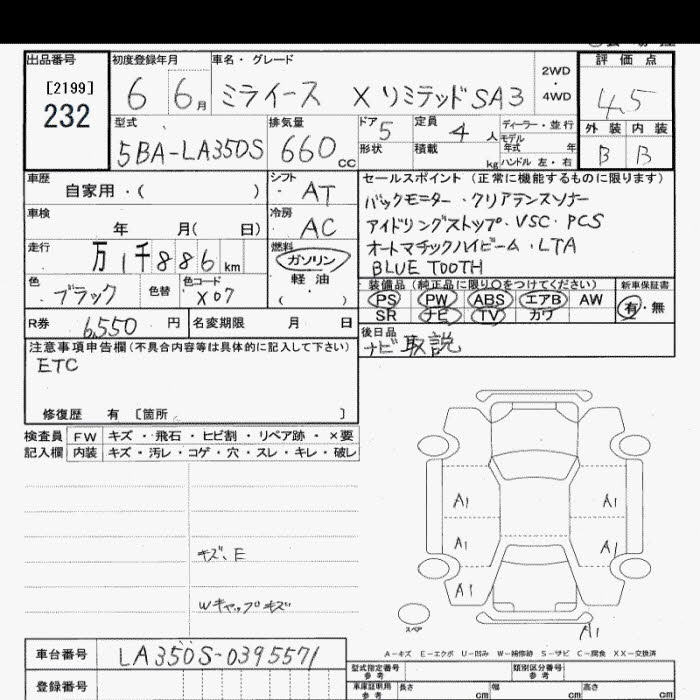 出品番号
[2199]
232
初度登録年月
6 6月
車名・グレード
ミライース X リミテッドSA3
2WD
・
4WD
評価点
4.5
外装 内装
B B
型式
5BA-LA350S
排気量
660cc
ドア 5
形状
定員 4人
積載 kg
ディーラー・並行
モデル年式 年
ハンドル 左・右
車歴
自家用・( )
シフト
AT
車検
年 月( 日)
冷房
AC
走行
万1千886km
燃料
ガソリン
軽油
( )
色
ブラック
色替
色コード
X07
R券 6,550 円
名変期限 月 日
セールスポイント (正常に機能するものに限ります)
バックモニター・クリアランスソナー
アイドリングストップ・VSC・PCS
オートマチックハイビーム・LTA
BLUE TOOTH
装備品 (純正品に限り○をつけてください)
PS PW ABS エアB AW
SR ナビ TV カワ
新車保証書
有・無
後日品
ナビ取説
注意事項申告欄(不具合内容等は具体的に記入して下さい)
ETC
修復歴 有 〔箇所 〕
検査員記入欄
FW キズ・飛石・ヒビ割・リペア跡・×要
内装 キズ・汚レ・コゲ・穴・スレ・キレ・破レ
キズ、E
Wキャップキズ
A1 A1
A1 A1
A1
A1
スペア
A-キズ E-エクボ U-凹み W-補修跡 S-サビ C-腐食 XX-交換済
車台番号 LA350S-0395571
登録番号
型式指定番号
参考
類別区分番号
参考
車庫証明用
参考
長さ cm
幅 cm
高さ cm